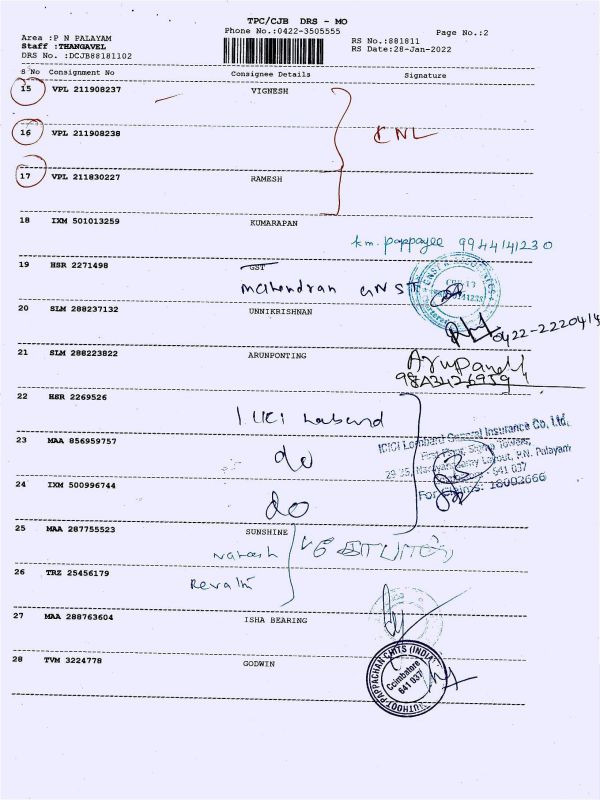 TPC/CJB DRS - MO
Phone No.:0422-3505555
Page No.:2
Area :P N PALAYAM
Staff :THANGAVEL
DRS No. :DCJB88181102
RS No.:881811
RS Date:28-Jan-2022
S No Consignment No Consignee Details Signature
15 VPL 211908237 VIGNESH
16 VPL 211908238
CNL
17 VPL 211830227 RAMESH
18 IXM 501013259 KUMARAPAN
km. pappayee 9944141230
19 HSR 2271498 GST
Mahendran GNST
20 SLM 288237132 UNNIKRISHNAN
0422-2220414
21 SLM 288223822 ARUNPONTING
22 HSR 2269526
ICICI Lombard General Insurance Co. Ltd.
23 MAA 856959757
do
P.N. Palayam
641 037
24 IXM 500996744
do
25 MAA 287755523 SUNSHINE
26 TRZ 25456179
Revathi
27 MAA 288763604 ISHA BEARING
28 TVM 3224778 GODWIN
MUTHOOT PAPPACHAN CHITS (INDIA)
Coimbatore
641 037